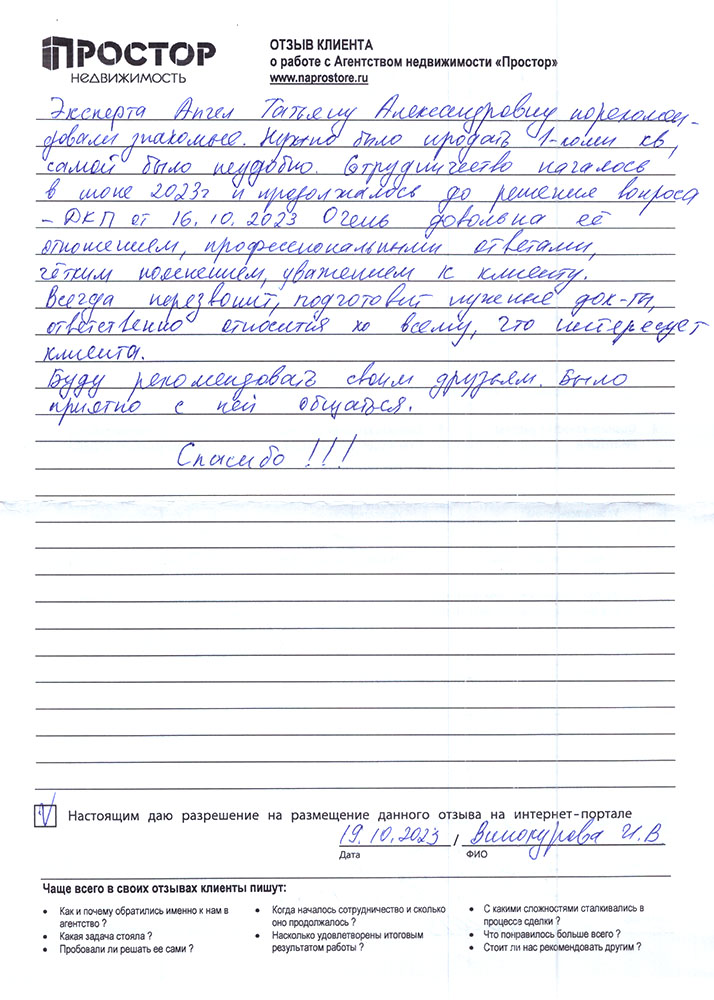 ПРОСТОР
НЕДВИЖИМОСТЬ
ОТЗЫВ КЛИЕНТА
о работе с Агентством недвижимости «Простор»
www.naprostore.ru
Эксперта Ангел Татьяну Александровну порекомен-
довали знакомые. Нужно было продать 1-комн кв,
самой было неудобно. Сотрудничество началось
в июне 2023г и продолжалось до решения вопроса
- ДКП от 16.10.2023 Очень довольна её
отношением, профессиональными ответами,
чётким пояснением, уважением к клиенту.
Всегда перезвонит, подготовит нужные док-ты,
ответственно относится ко всему, что интересует
клиента.
Буду рекомендовать своим друзьям. Было
приятно с ней общаться.
Спасибо !!!
V Настоящим даю разрешение на размещение данного отзыва на интернет-портале
19.10.2023 / Винокурова И.В
Дата ФИО
Чаще всего в своих отзывах клиенты пишут:
• Как и почему обратились именно к нам в
агентство ?
• Какая задача стояла ?
• Пробовали ли решать ее сами ?
• Когда началось сотрудничество и сколько
оно продолжалось ?
• Насколько удовлетворены итоговым
результатом работы ?
• С какими сложностями сталкивались в
процессе сделки ?
• Что понравилось больше всего ?
• Стоит ли нас рекомендовать другим ?